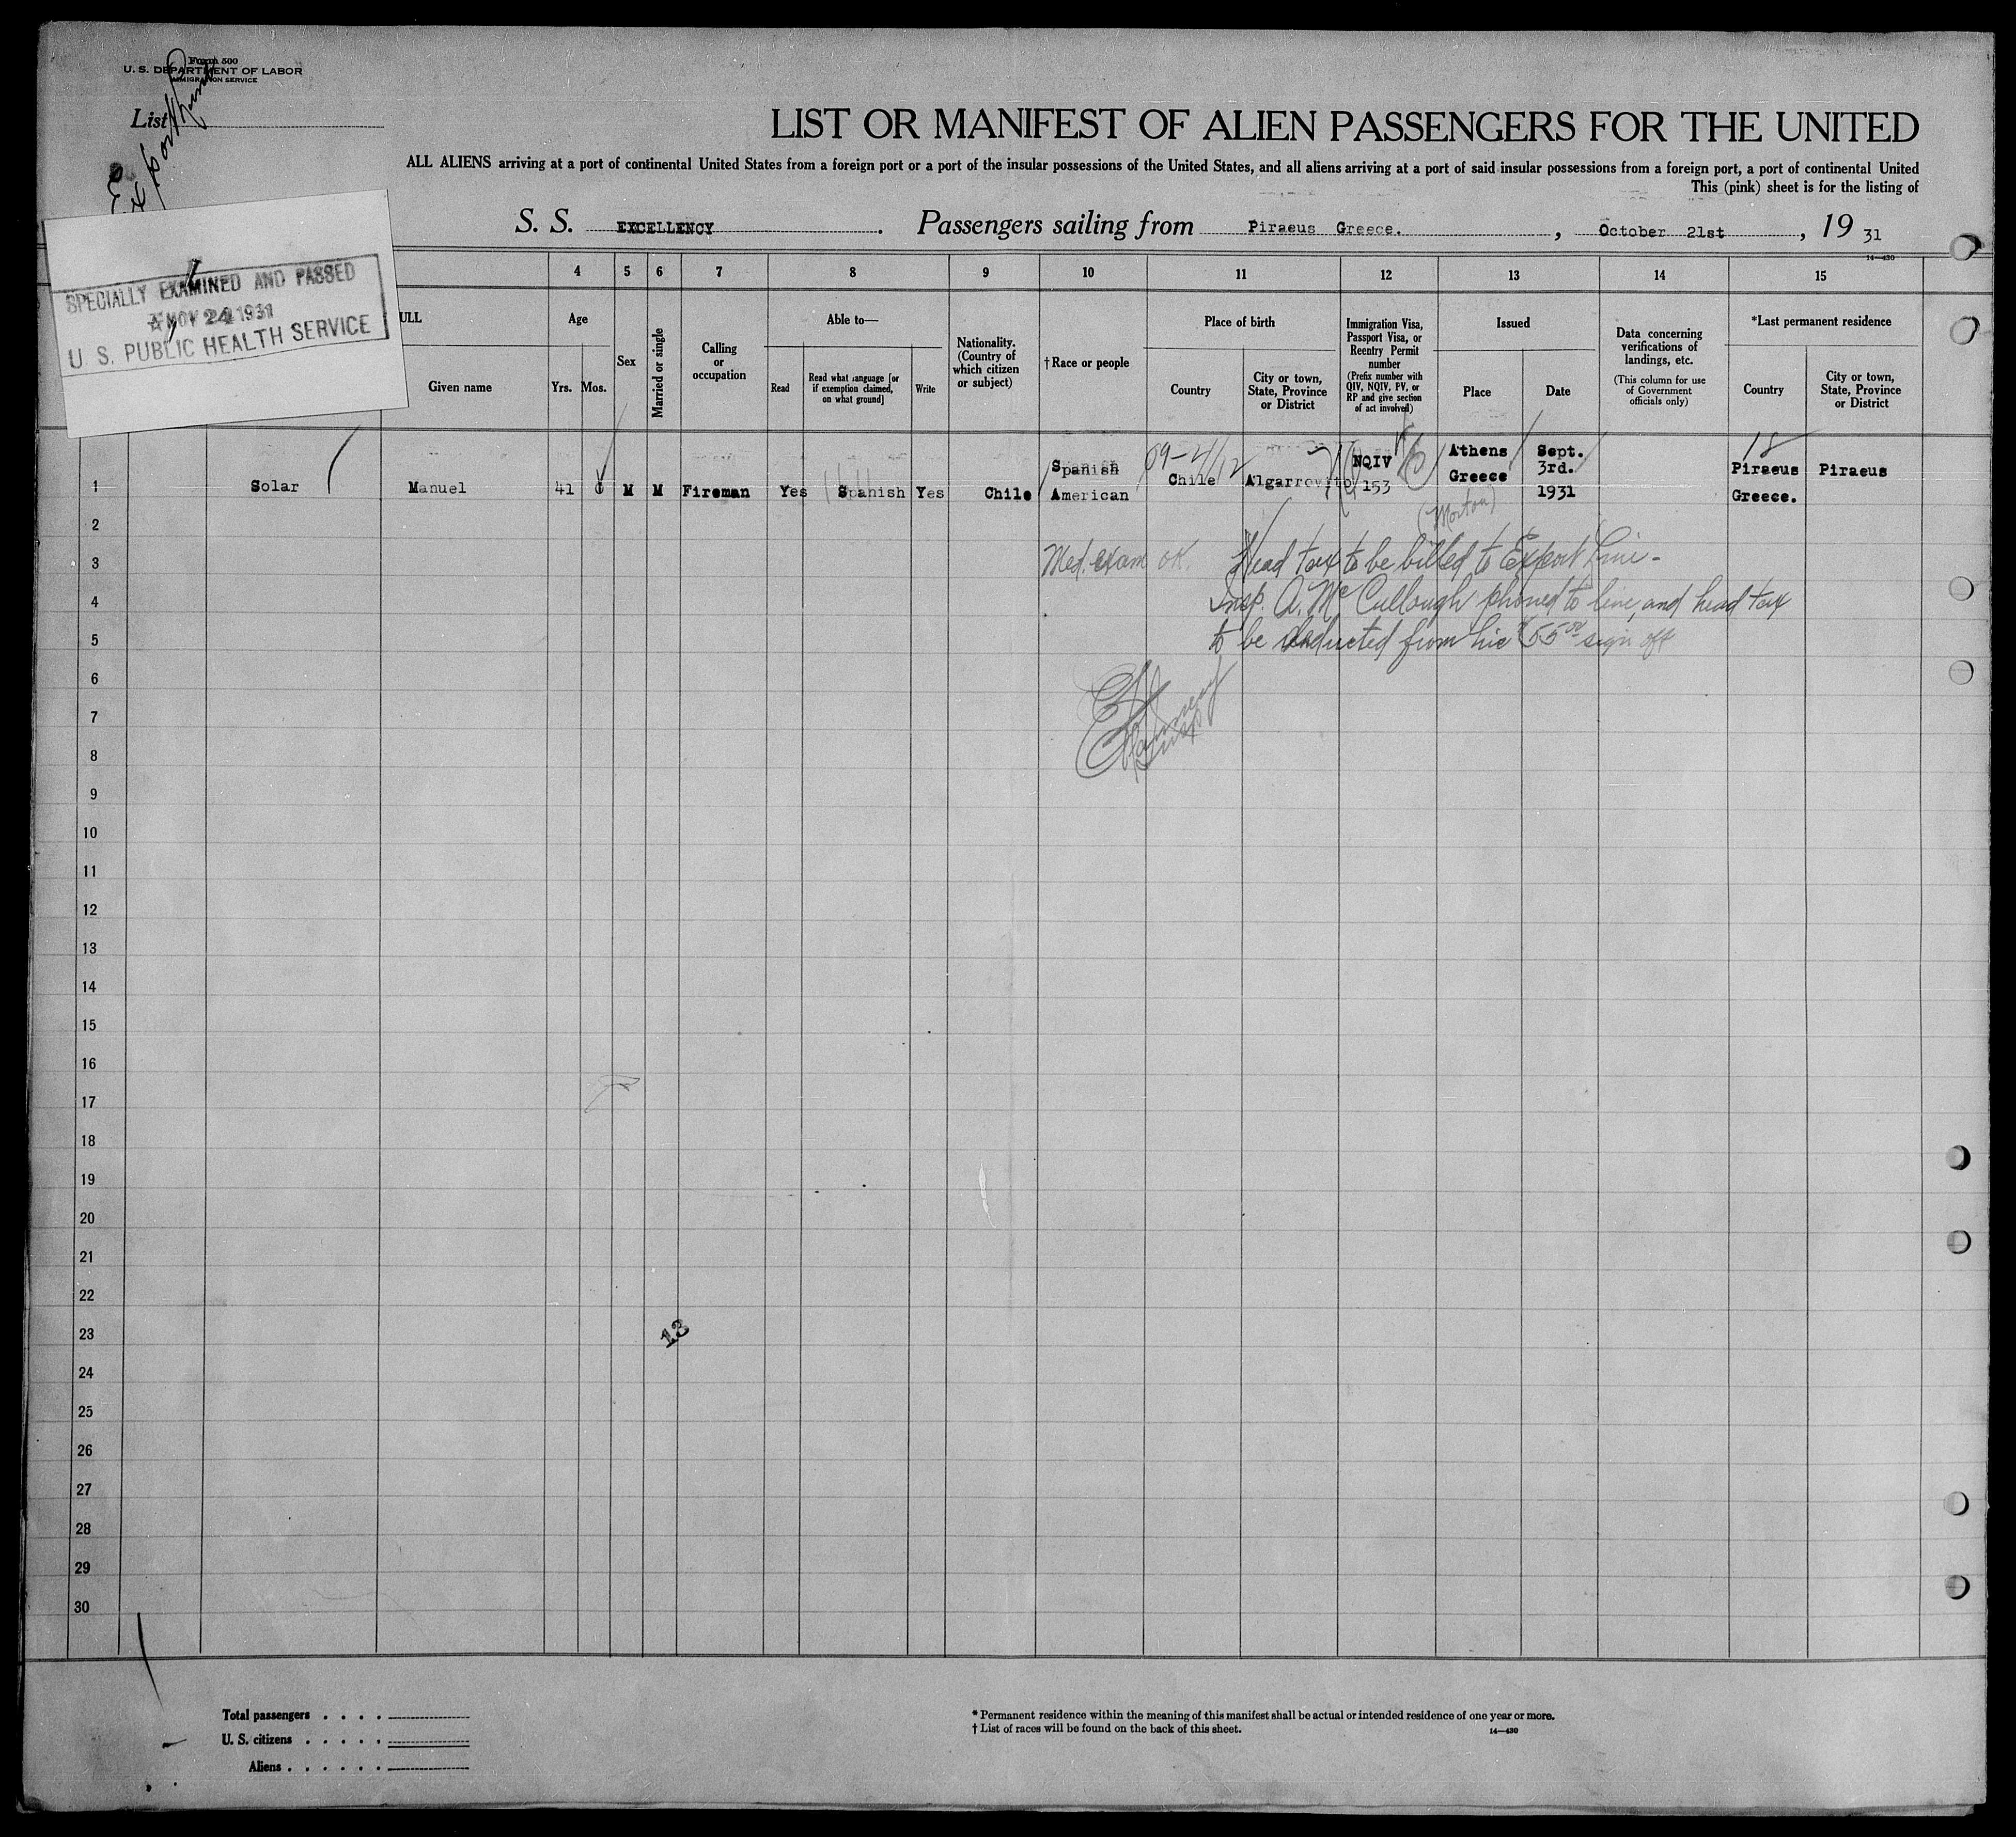 Form 500
U. S. DEPARTMENT OF LABOR
IMMIGRATION SERVICE
List
Export
LIST OR MANIFEST OF ALIEN PASSENGERS FOR THE UNITED
ALL ALIENS arriving at a port of continental United States from a foreign port or a port of the insular possessions of the United States, and all aliens arriving at a port of said insular possessions from a foreign port, a port of continental United
This (pink) sheet is for the listing of
S. S. EXCELLENCY. Passengers sailing from Piraeus Greece. , October 21st , 19 31
14—430
SPECIALLY EXAMINED AND PASSED
NOV 24 1931
U. S. PUBLIC HEALTH SERVICE
4 5 6 7 8 9 10 11 12 13 14 15
ULL
Given name
Age
Yrs. Mos.
Sex
Married or single
Calling
or
occupation
Able to—
Read
Read what language [or
if exemption claimed,
on what ground]
Write
Nationality.
(Country of
which citizen
or subject)
† Race or people
Place of birth
Country
City or town,
State, Province
or District
Immigration Visa,
Passport Visa, or
Reentry Permit
number
(Prefix number with
QIV, NQIV, PV, or
RP and give section
of act involved)
Issued
Place
Date
Data concerning
verifications of
landings, etc.
(This column for use
of Government
officials only)
*Last permanent residence
Country
City or town,
State, Province
or District
1 Solar Manuel 41 M M Fireman Yes Spanish Yes Chile Spanish American Chile Algarrovito NQIV 153 Athens Greece Sept. 3rd. 1931 Piraeus Greece. Piraeus
18
(Morton)
2
3 Med. exam OK. Head tax to be billed to Export Line -
4 Insp. A. McCullough phoned to line, and head tax
5 to be deducted from his $55.00 sign off
6
7
8
9
10
11
12
13
14
15
16
17
18
19
20
21
22
23 13
24
25
26
27
28
29
30
Total passengers . . . .
U. S. citizens . . . . .
Aliens . . . . . .
* Permanent residence within the meaning of this manifest shall be actual or intended residence of one year or more.
† List of races will be found on the back of this sheet. 14—430